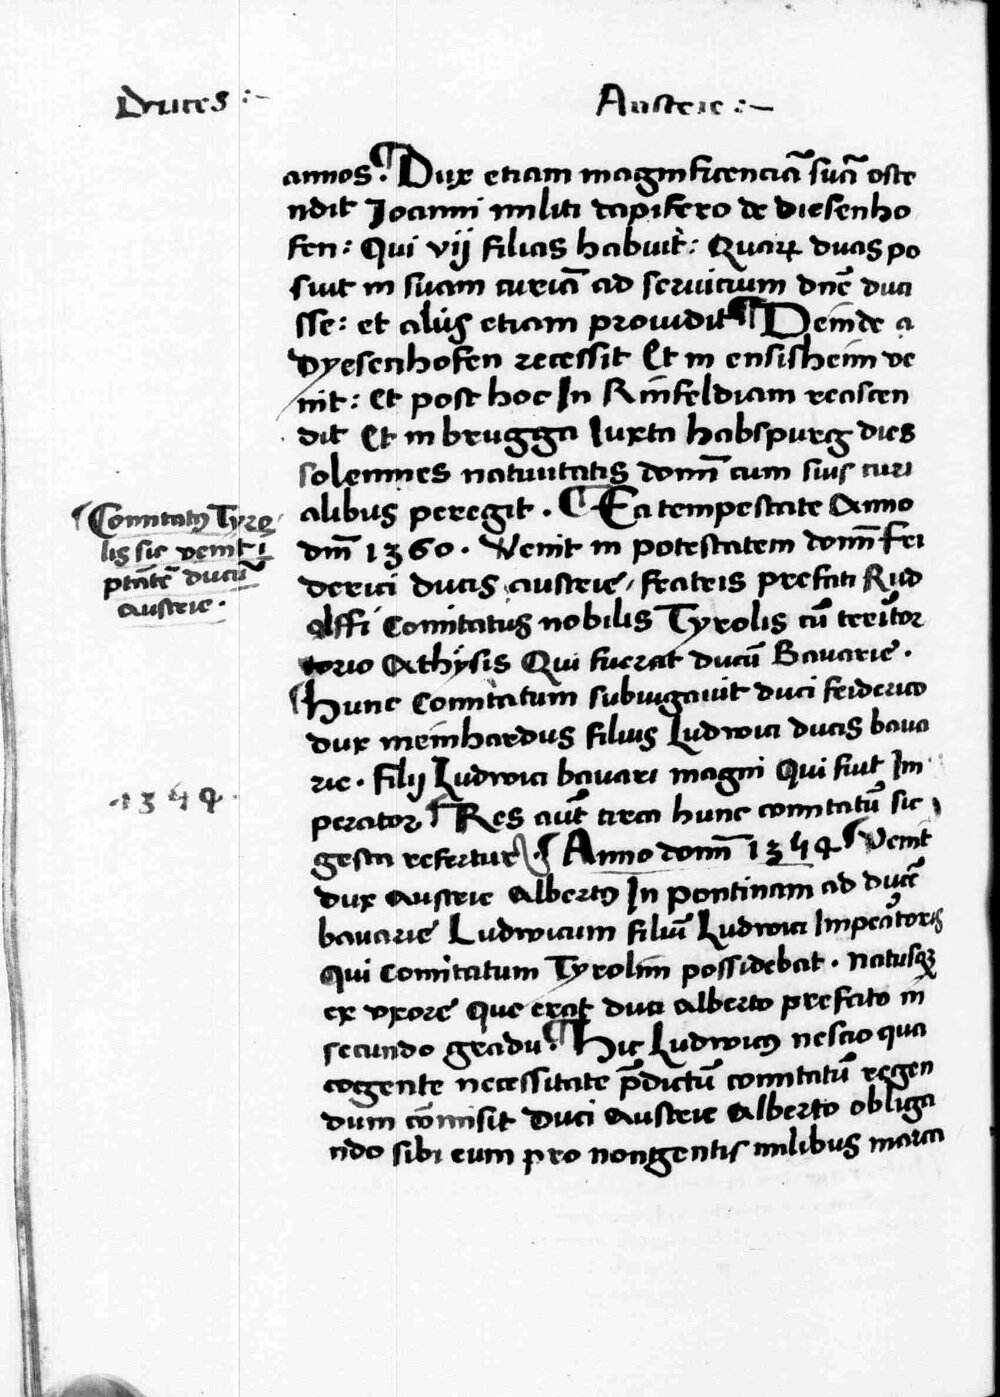 Duces :~
Austrie :~
annos. ¶ Dux etiam magnificenciā suā oste
ndit Joanni militi dapifero de Diesenho
fen: Qui vij filias habuit: Quarꝝ duas po
suit in suam curiā ad seruicium dnē duci
sse: et aliis etiam prouidit ¶ Deinde a
Dyesenhofen recessit Et in ensisheim ve
nit: Et post hoc In Rinfeldiam reascen
dit Et in brugga Iuxta habspurg dies
solemnes natiuitatis domī cum suis curi
alibus peregit. ¶ Ea tempestate Anno
dm̄ 1360. Venit in potestatem domī Fri
derici ducis austrie, fratris prefati Rud
olffi Comitatus nobilis Tyrolis cū territor
torio Athysis Qui fuerat ducū Bavarie.
¶ Hunc Comitatum subiugauit duci friderico
dux meinhardus filius Ludwici ducis bava
rie. filij Ludwici bavari magni Qui fuit Im
perator ¶ Res aūt circa hunc comitatū sic
gesta refertur. ¶ Anno domī 1354 ¶ Venit
dux Austrie Albertꝰ In pontinam ad ducē
bavarie Ludwicum filiū Ludwici Impeātoris
qui Comitatum Tyrolim possidebat. natusqꝫ
ex vxore Que erat duci Alberto prefato in
secundo gradu. ¶ Hic Ludwicꝰ nescio qua
cogente necessitate p̄dictū comitatū regen
dum cōmisit Duci Austrie Alberto obliga
ndo sibi eum pro nongentis milibus marca
¶ Comitatꝰ Tyro
lis sic venit i
ptātē ducū
Austrie.
1354.